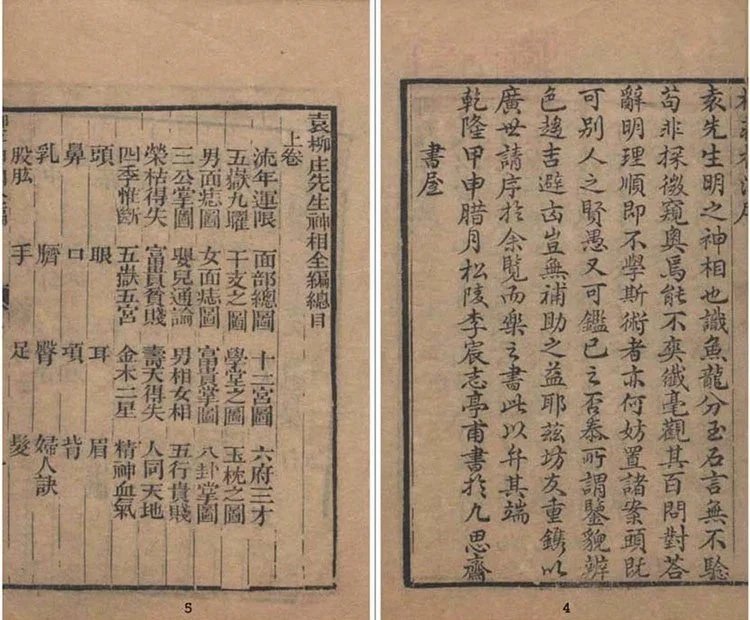 袁先生明之神相也識魚龍分玉石言無不驗
苟非探微窺奧焉能不爽纖毫觀其百問對答
辭明理順即不學斯術者亦何妨置諸案頭既
可別人之賢愚又可鑑己之否泰所謂鑒貌辨
色趍吉避凶豈無補助之益耶茲坊友重鐫以
廣世請序於余覽而樂之書此以弁其端
乾隆甲申腊月松陵李宸志亭甫書於九思齋
書屋
4
袁柳庄先生神相全編總目
上卷
流年運限 面部總圖 十二宮圖 六府三才
五嶽九曜 干支之圖 學堂之圖 玉枕之圖
男面痣圖 女面痣圖 富貴掌圖 八卦掌圖
三公掌圖 嬰兒通論 男相女相 五行貴賤
榮枯得失 富貴貧賤 壽夭得失 人同天地
四季惟斷 五嶽五宮 金木二星 精神血氣
頭 眼 耳 眉
鼻 口 項 背
乳 臍 臀 婦人訣
股肱 手 足 髮
5